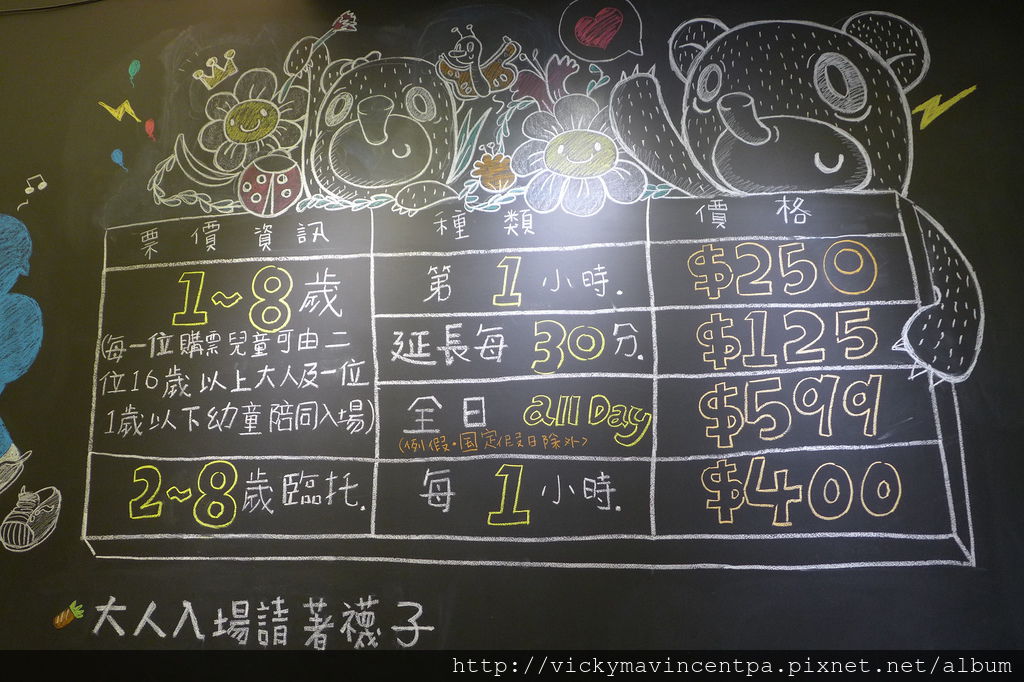 票價資訊 種類 價格
1~8歲
(每一位購票兒童可由二
位16歲以上大人及一位
1歲以下幼童陪同入場)
第1小時. $250
延長每30分. $125
全日 all Day $599
(例假·固定假日除外)
2~8歲臨托. 每1小時. $400
大人入場請著襪子
http://vickymavincentpa.pixnet.net/album